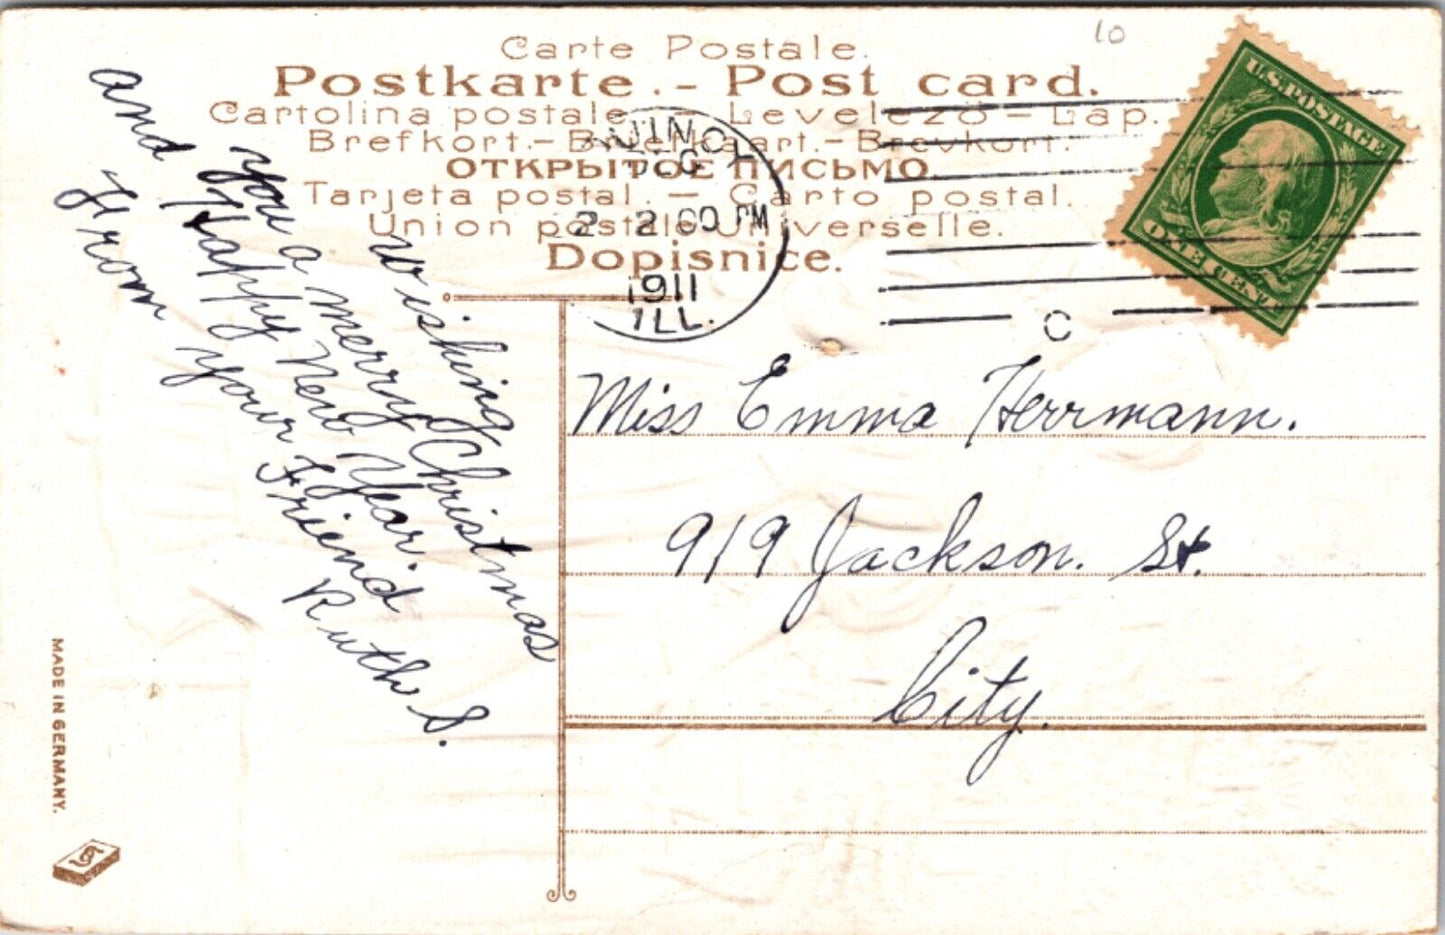 10
Carte Postale.
Postkarte.- Post card.
Cartolina postale - Levelező - Lap.
Brefkort.- Briefkaart.- Brevkort.
ОТКРЫТОЕ ПИСЬМО.
Tarjeta postal. - Carto postal.
Union postale universelle.
Dopisnice.
U.S.POSTAGE
ONE CENT
2 60 PM
1911
ILL.
C
wishing
you a merry Christmas
and Happy New Year.
From your Friend
Ruth S.
Miss Emma Herrmann.
919 Jackson. St.
City.
MADE IN GERMANY.